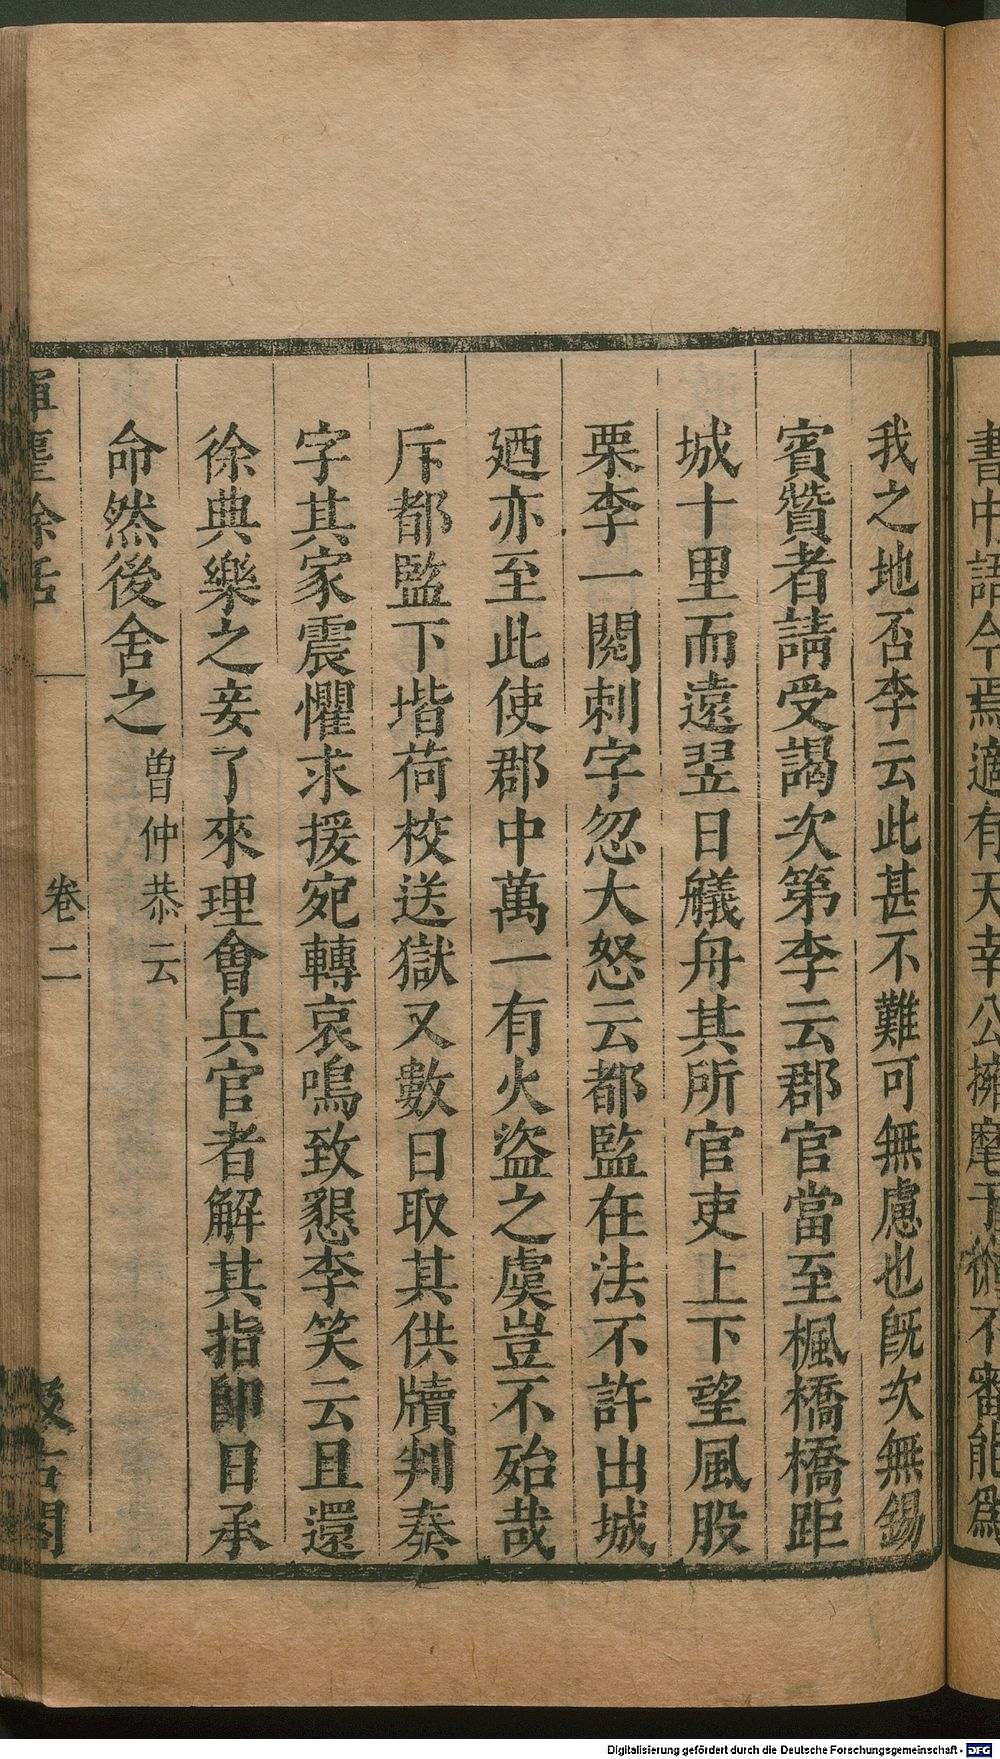 書中語今焉適有天幸公擁麾于彼不審能爲
我之地否李云此甚不難可無慮也旣次無錫
賓贊者請受謁次第李云郡官當至楓橋橋距
城十里而遠翌日艤舟其所官吏上下望風股
栗李一閱刺字忽大怒云都監在法不許出城
廼亦至此使郡中萬一有火盜之虞豈不殆哉
斥都監下堦荷校送獄又數日取其供牘判奏
字其家震懼求援宛轉哀鳴致懇李笑云且還
徐典樂之妾了來理會兵官者解其指卽日承
命然後舍之 曾仲恭云
揮麈餘話 卷二 汲古閣
Digitalisierung gefördert durch die Deutsche Forschungsgemeinschaft - DFG